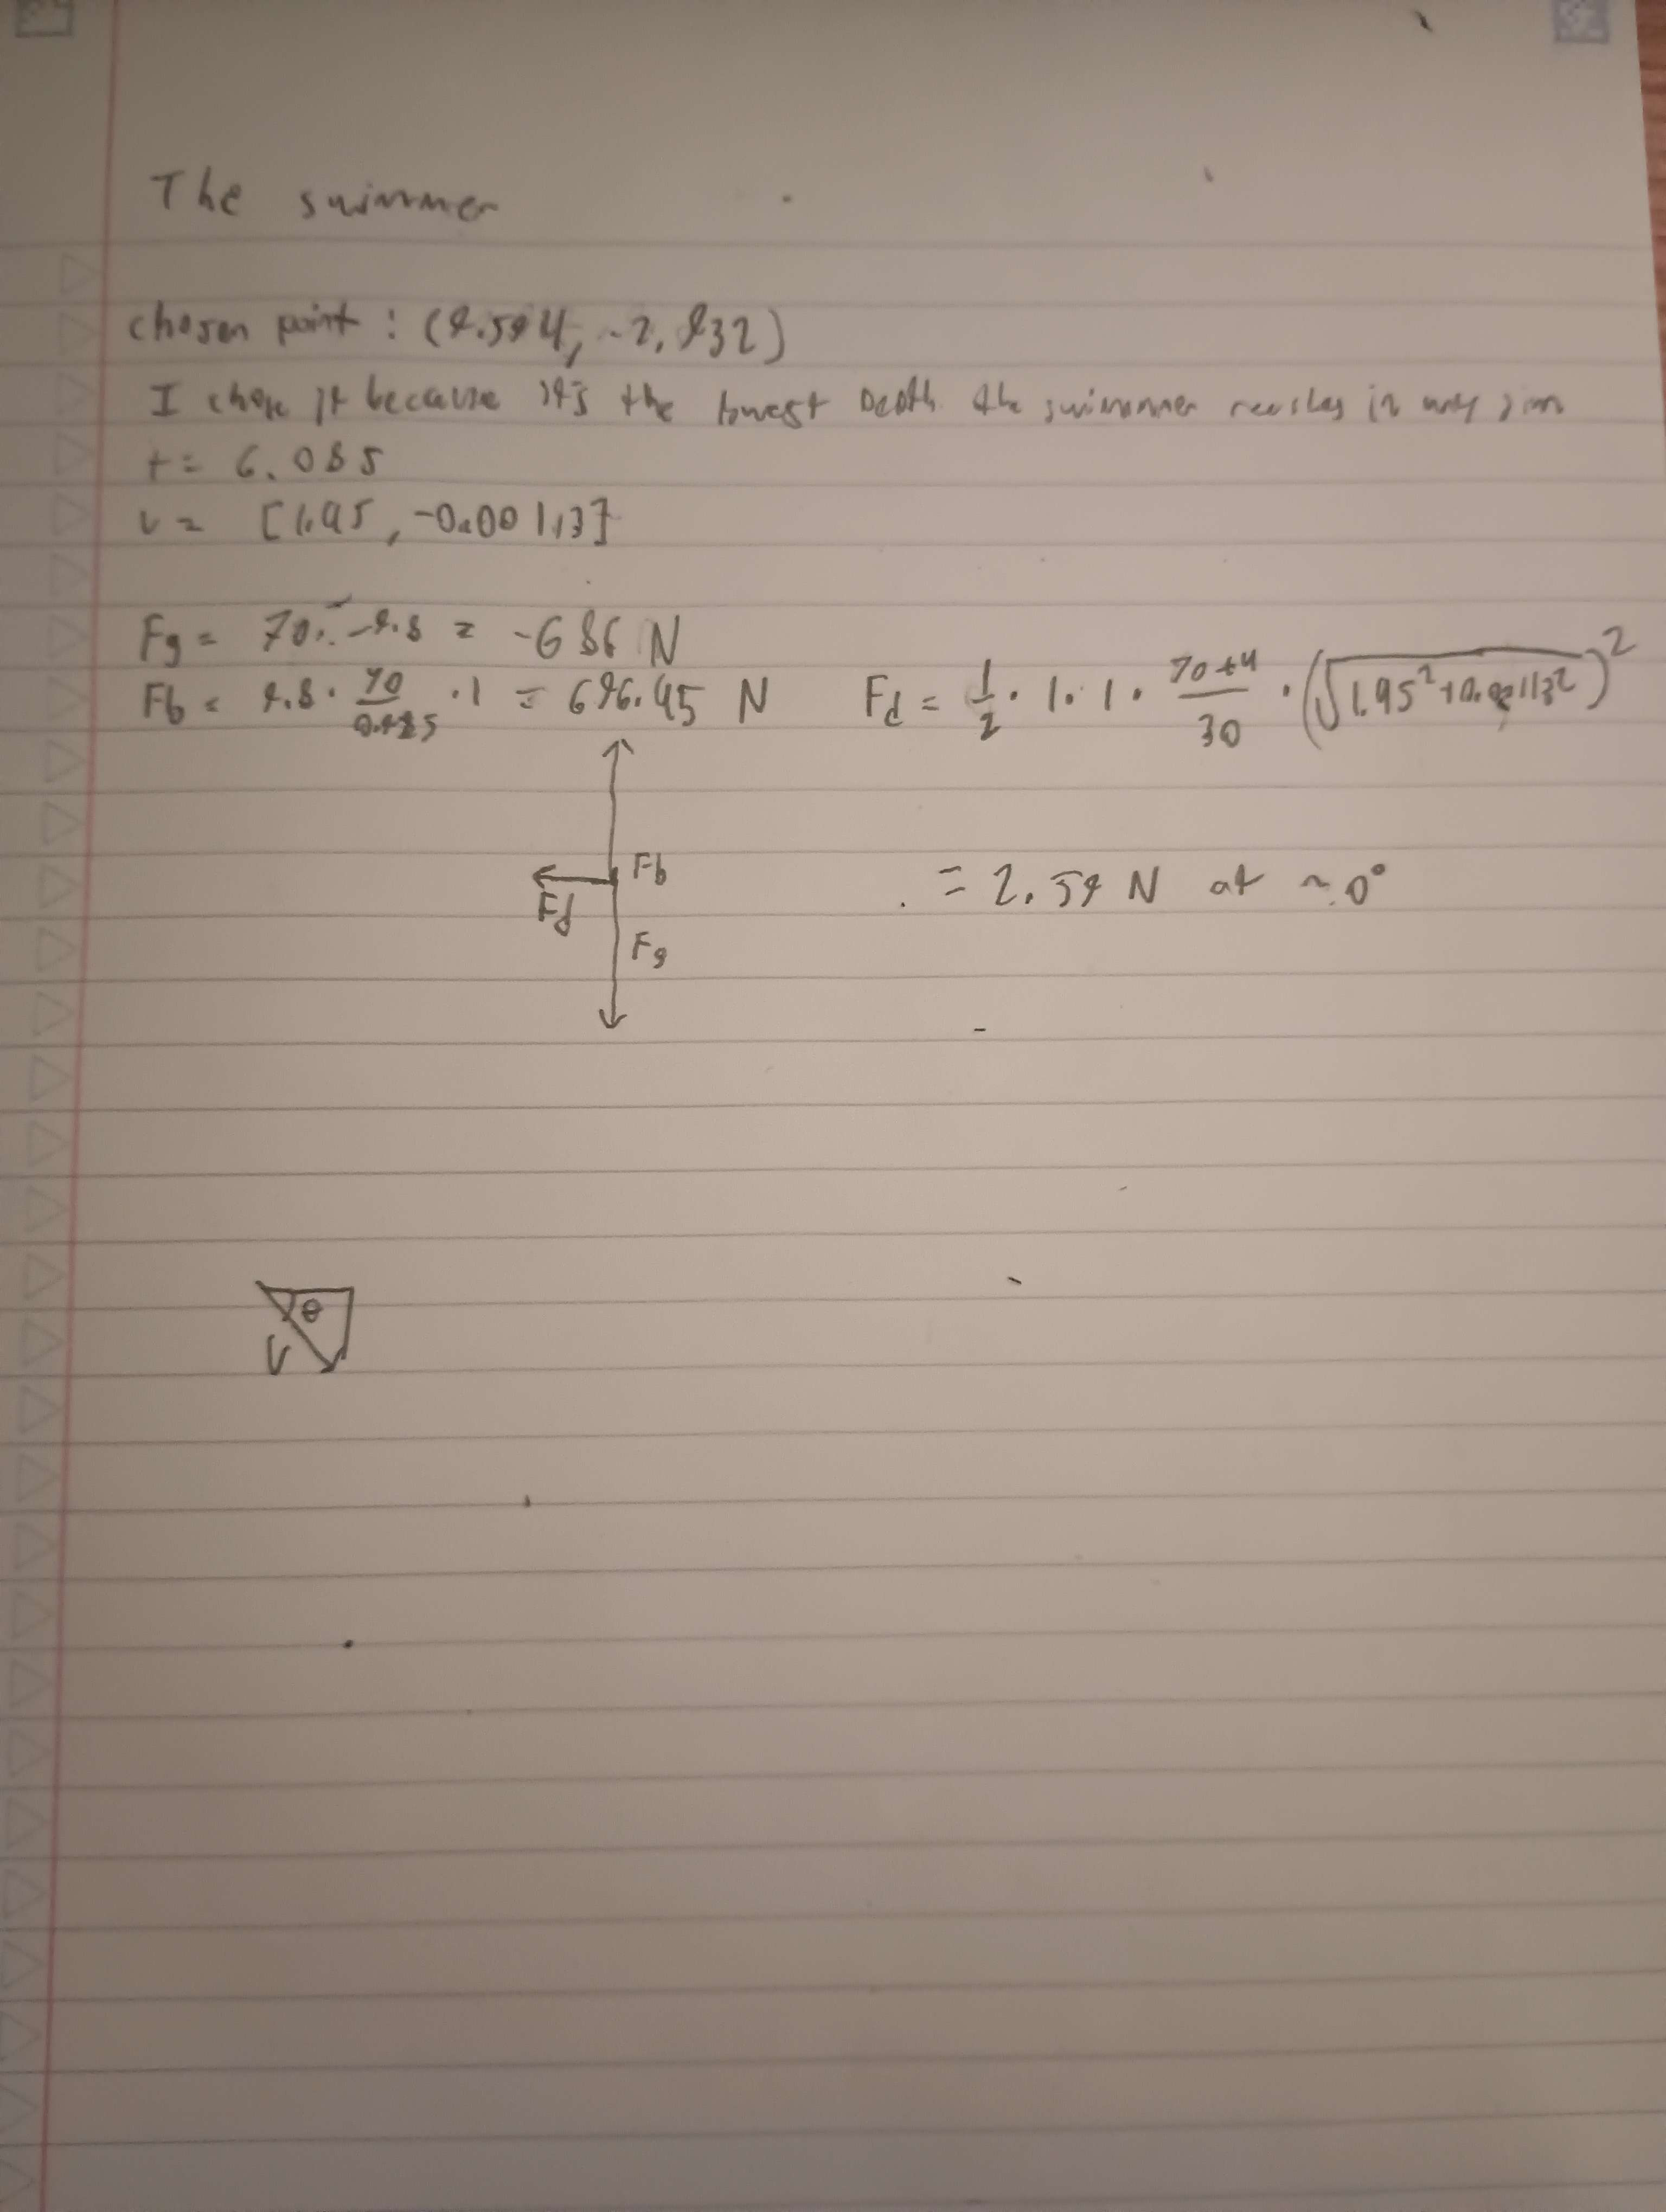 The swimmer
chosen point : (9.594, -2.932)
I chose it because it's the lowest Depth the swimmer reaches in my sim
t = 6.085
v = [1.95, -0.00113]
Fg = 70 · -9.8 = -686 N
Fb = 9.8 · 70/0.985 · 1 = 696.45 N
Fd = 1/2 · 1 · 1 · 70+4/30 · (√1.95²+0.00113²)²
= 2.59 N at ~0°
Fb
Fd
Fg
θ
V